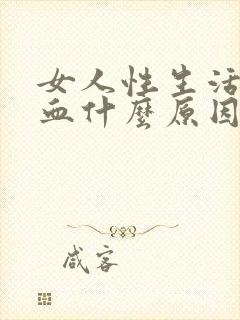 女人性生活
血什麼原因
咸客